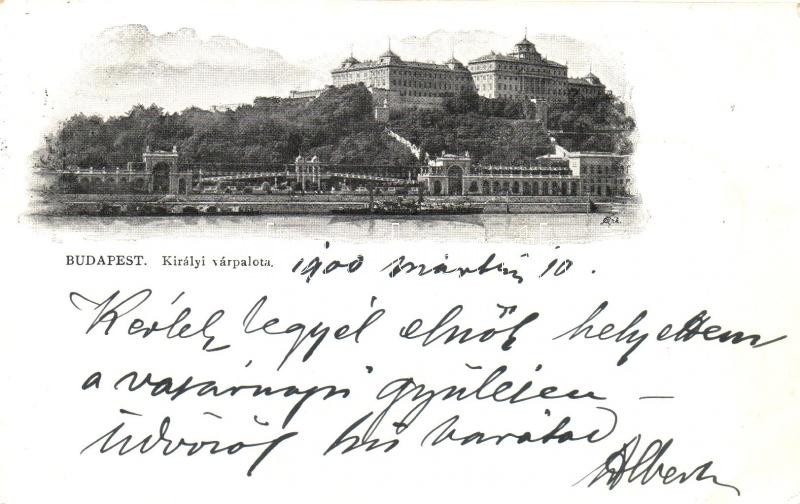 BUDAPEST. Királyi várpalota. 1900 március 10.
Kérlek legyél elnök helyettem
a vasárnapi gyűlésen –
Üdvözöl hű barátod
Albert